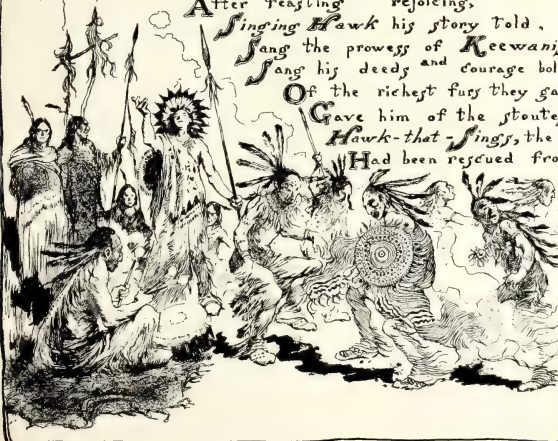 After feasting rejoicing,
Singing Hawk his story told,
Sang the prowess of Keewani
Sang his deeds and courage bol
Of the richest furs they ga
Gave him of the stoute
Hawk-that-Sings, the
Had been rescued fro